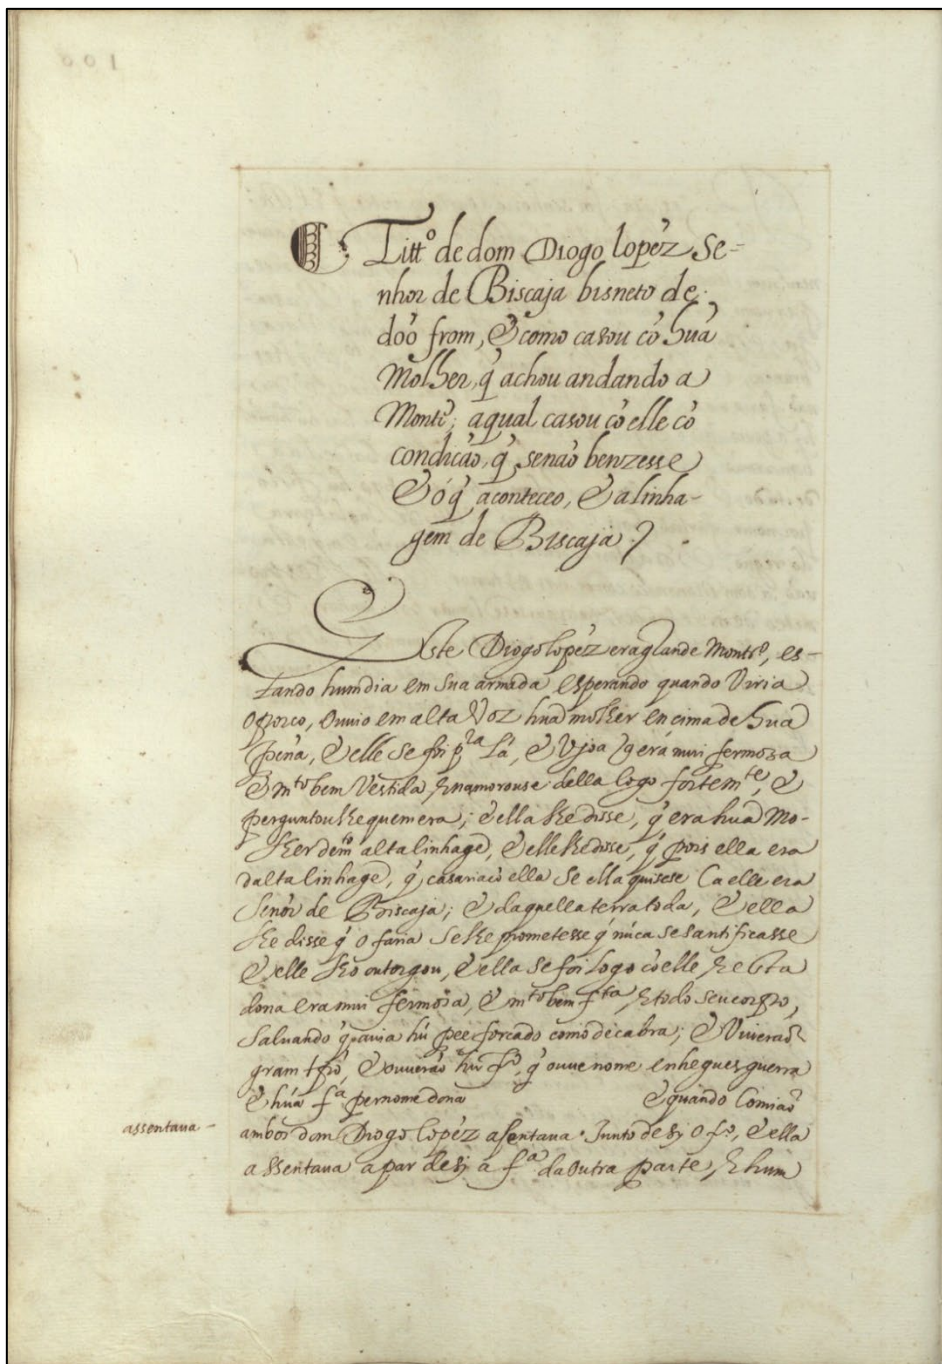 Titt.º de dom Diogo lopéz Se=
nhor de Biscaja bisneto de
dóo from, & como casou cõ hũa
Molher, q̃ achou andando a
Montr̃; a qual casou cõ elle cõ
condicão, q̃ senão benzesse
& ó q̃ aconteceo, & a linha-
gem de Biscaja
Este Diogo lopéz era grande Montr.º, es-
tando hum dia em sua armada esperando quando Viria
o porco, ouuio em alta Voz hũa molher en cima de hũa
pena, & elle se foi p.ª la, & q̃ era mui fermosa
& m.to bem Vestida, & namorouse della logo fortem.te, &
perguntoulhe quem era; & ella lhe disse, q̃ era hũa Mo-
lher de m.to alta linhagẽ, & elle lhe disse, q̃ pois ella era
dalta linhagẽ, q̃ casaria cõ ella se ella quisese Ca elle era
Senõr de Biscaja; & daquella terra toda, & ella
lhe disse q̃ o faria se lhe prometesse q̃ nũca se santificasse
& elle lho outorgou, & ella se foi logo cõ elle, & esta
dona era mui fermosa, & m.to bem f.ta, & todo seu corpo,
saluando q̃ auia hũ pee forcado como de cabra; & Viuerão
gram tpõ, & ouuerão hũ f.º, q̃ ouue nome enheguez guerra
& hũa f.ª per nome dona & quando Comião
assentaua -
ambos dom Diogo lopéz asentaua Junto de sy o f.º, & ella
assentaua a par de sy a f.ª da outra parte, & hum
100